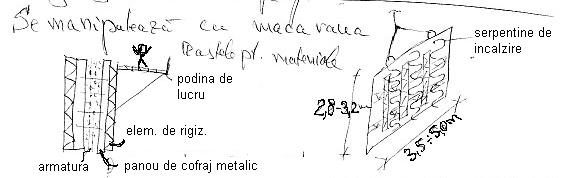 Se manipulează cu macaraua
pt. materiale
serpentine de
incalzire
podina de
lucru
2,8-3,2m
elem. de rigiz.
3,5÷5,0m
armatura
panou de cofraj metalic